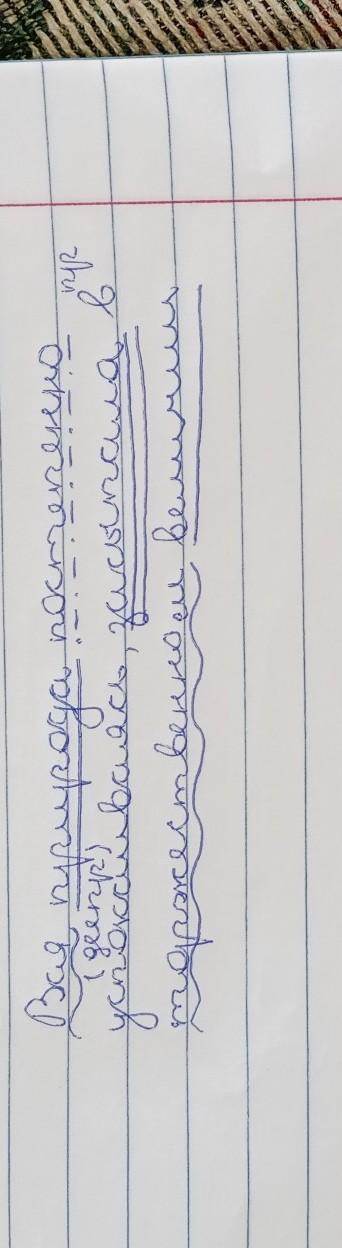 Вся природа постепенно
(деепр) пр
успокаиваясь, засыпала в
торжественном величии